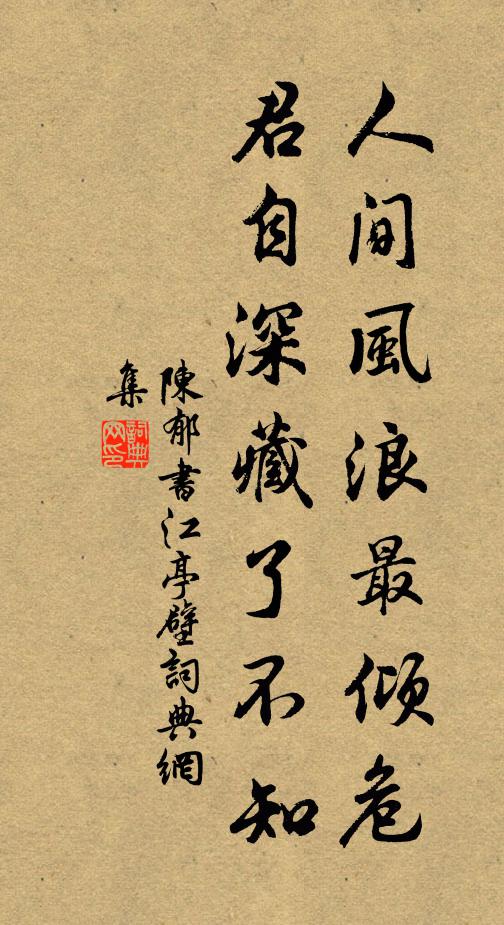 人间風浪最倾危
君自深藏了不知
陳郁書江亭壁詞典網
集
詞典
网印